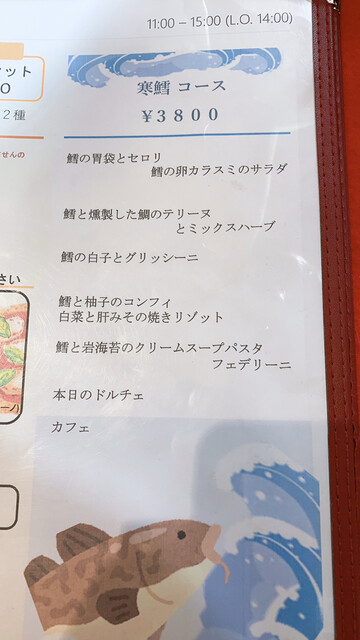 11:00 – 15:00 (L.O. 14:00)
寒鱈 コース
¥3800
鱈の胃袋とセロリ
鱈の卵カラスミのサラダ
鱈と燻製した鯛のテリーヌ
とミックスハーブ
鱈の白子とグリッシーニ
鱈と柚子のコンフィ
白菜と肝みその焼きリゾット
鱈と岩海苔のクリームスープパスタ
フェデリーニ
本日のドルチェ
カフェ
ット
O
2種
せんの
さい